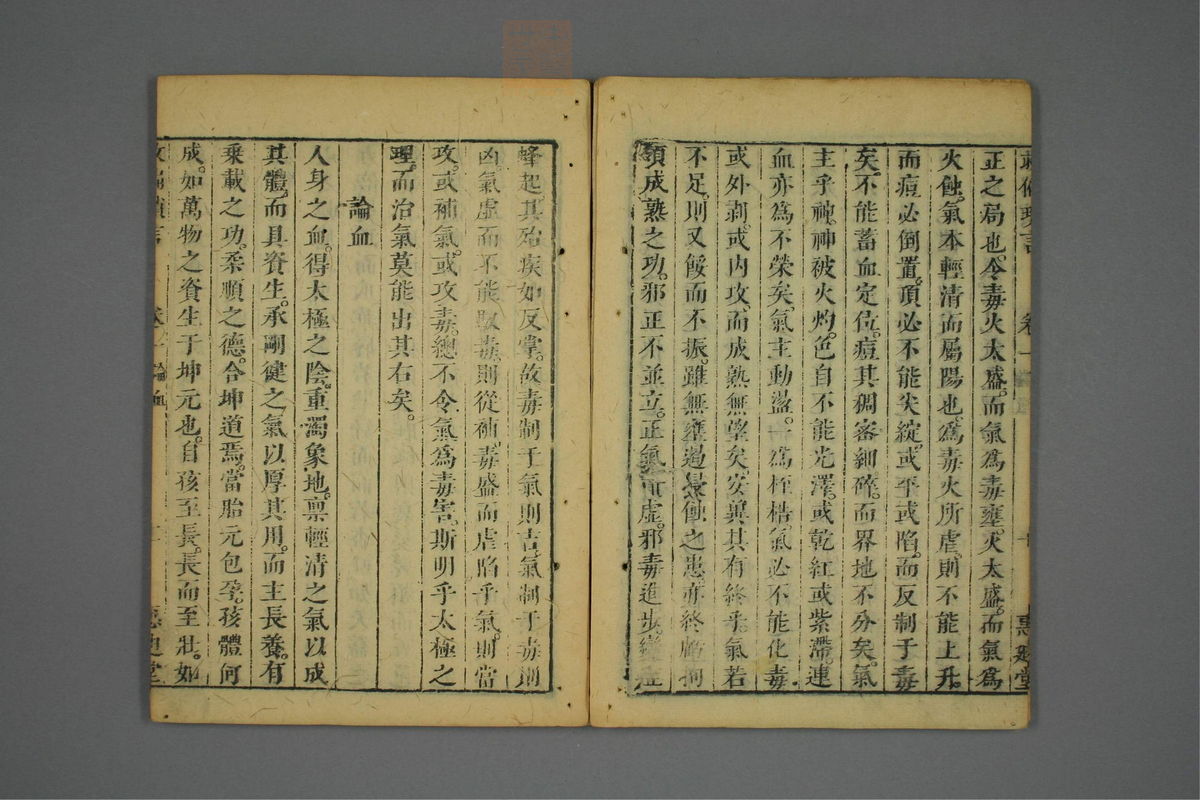 正之局也。今毒火太盛。而氣爲毒壅。火太盛。而氣爲
火蝕。氣本輕清而屬陽也。爲毒火所虐。則不能上升。
而痘必倒置。頂必不能尖綻。或平或陷。而反制于毒
矣。不能蓄血定位。痘其稠密細碎。而界地不分矣。氣
主乎神。神被火灼。色自不能光澤。或乾紅或紫滯。連
血亦爲不榮矣。氣主動盪。爲桎梏。氣必不能化毒
或外剥。或内攻。而成熟無望矣。安冀其有終乎。氣若
不足。則又餒而不振。雖無壅遏侵蝕之患。亦終
領成熟之功。邪正不並立。正氣虛。邪毒進步。
蜂起。其殆疾如反掌。故毒制于氣則吉。氣制于毒則
凶。氣虛而不能馭毒。則從補。毒盛而虐陷乎氣。則當
攻。或補氣。或攻毒。總不令氣爲毒害。斯明乎太極之
理。而治氣莫能出其右矣。
論血
人身之血。得太極之陰。重濁象地。禀輕清之氣以成
其體。而具資生。承剛健之氣以厚其用。而主長養。有
乗載之功。柔順之德。合坤道焉。當胎元包孕。孩體何
成。如萬物之資生于坤元也。自孩至長。長而至壯。如
卷一 論血